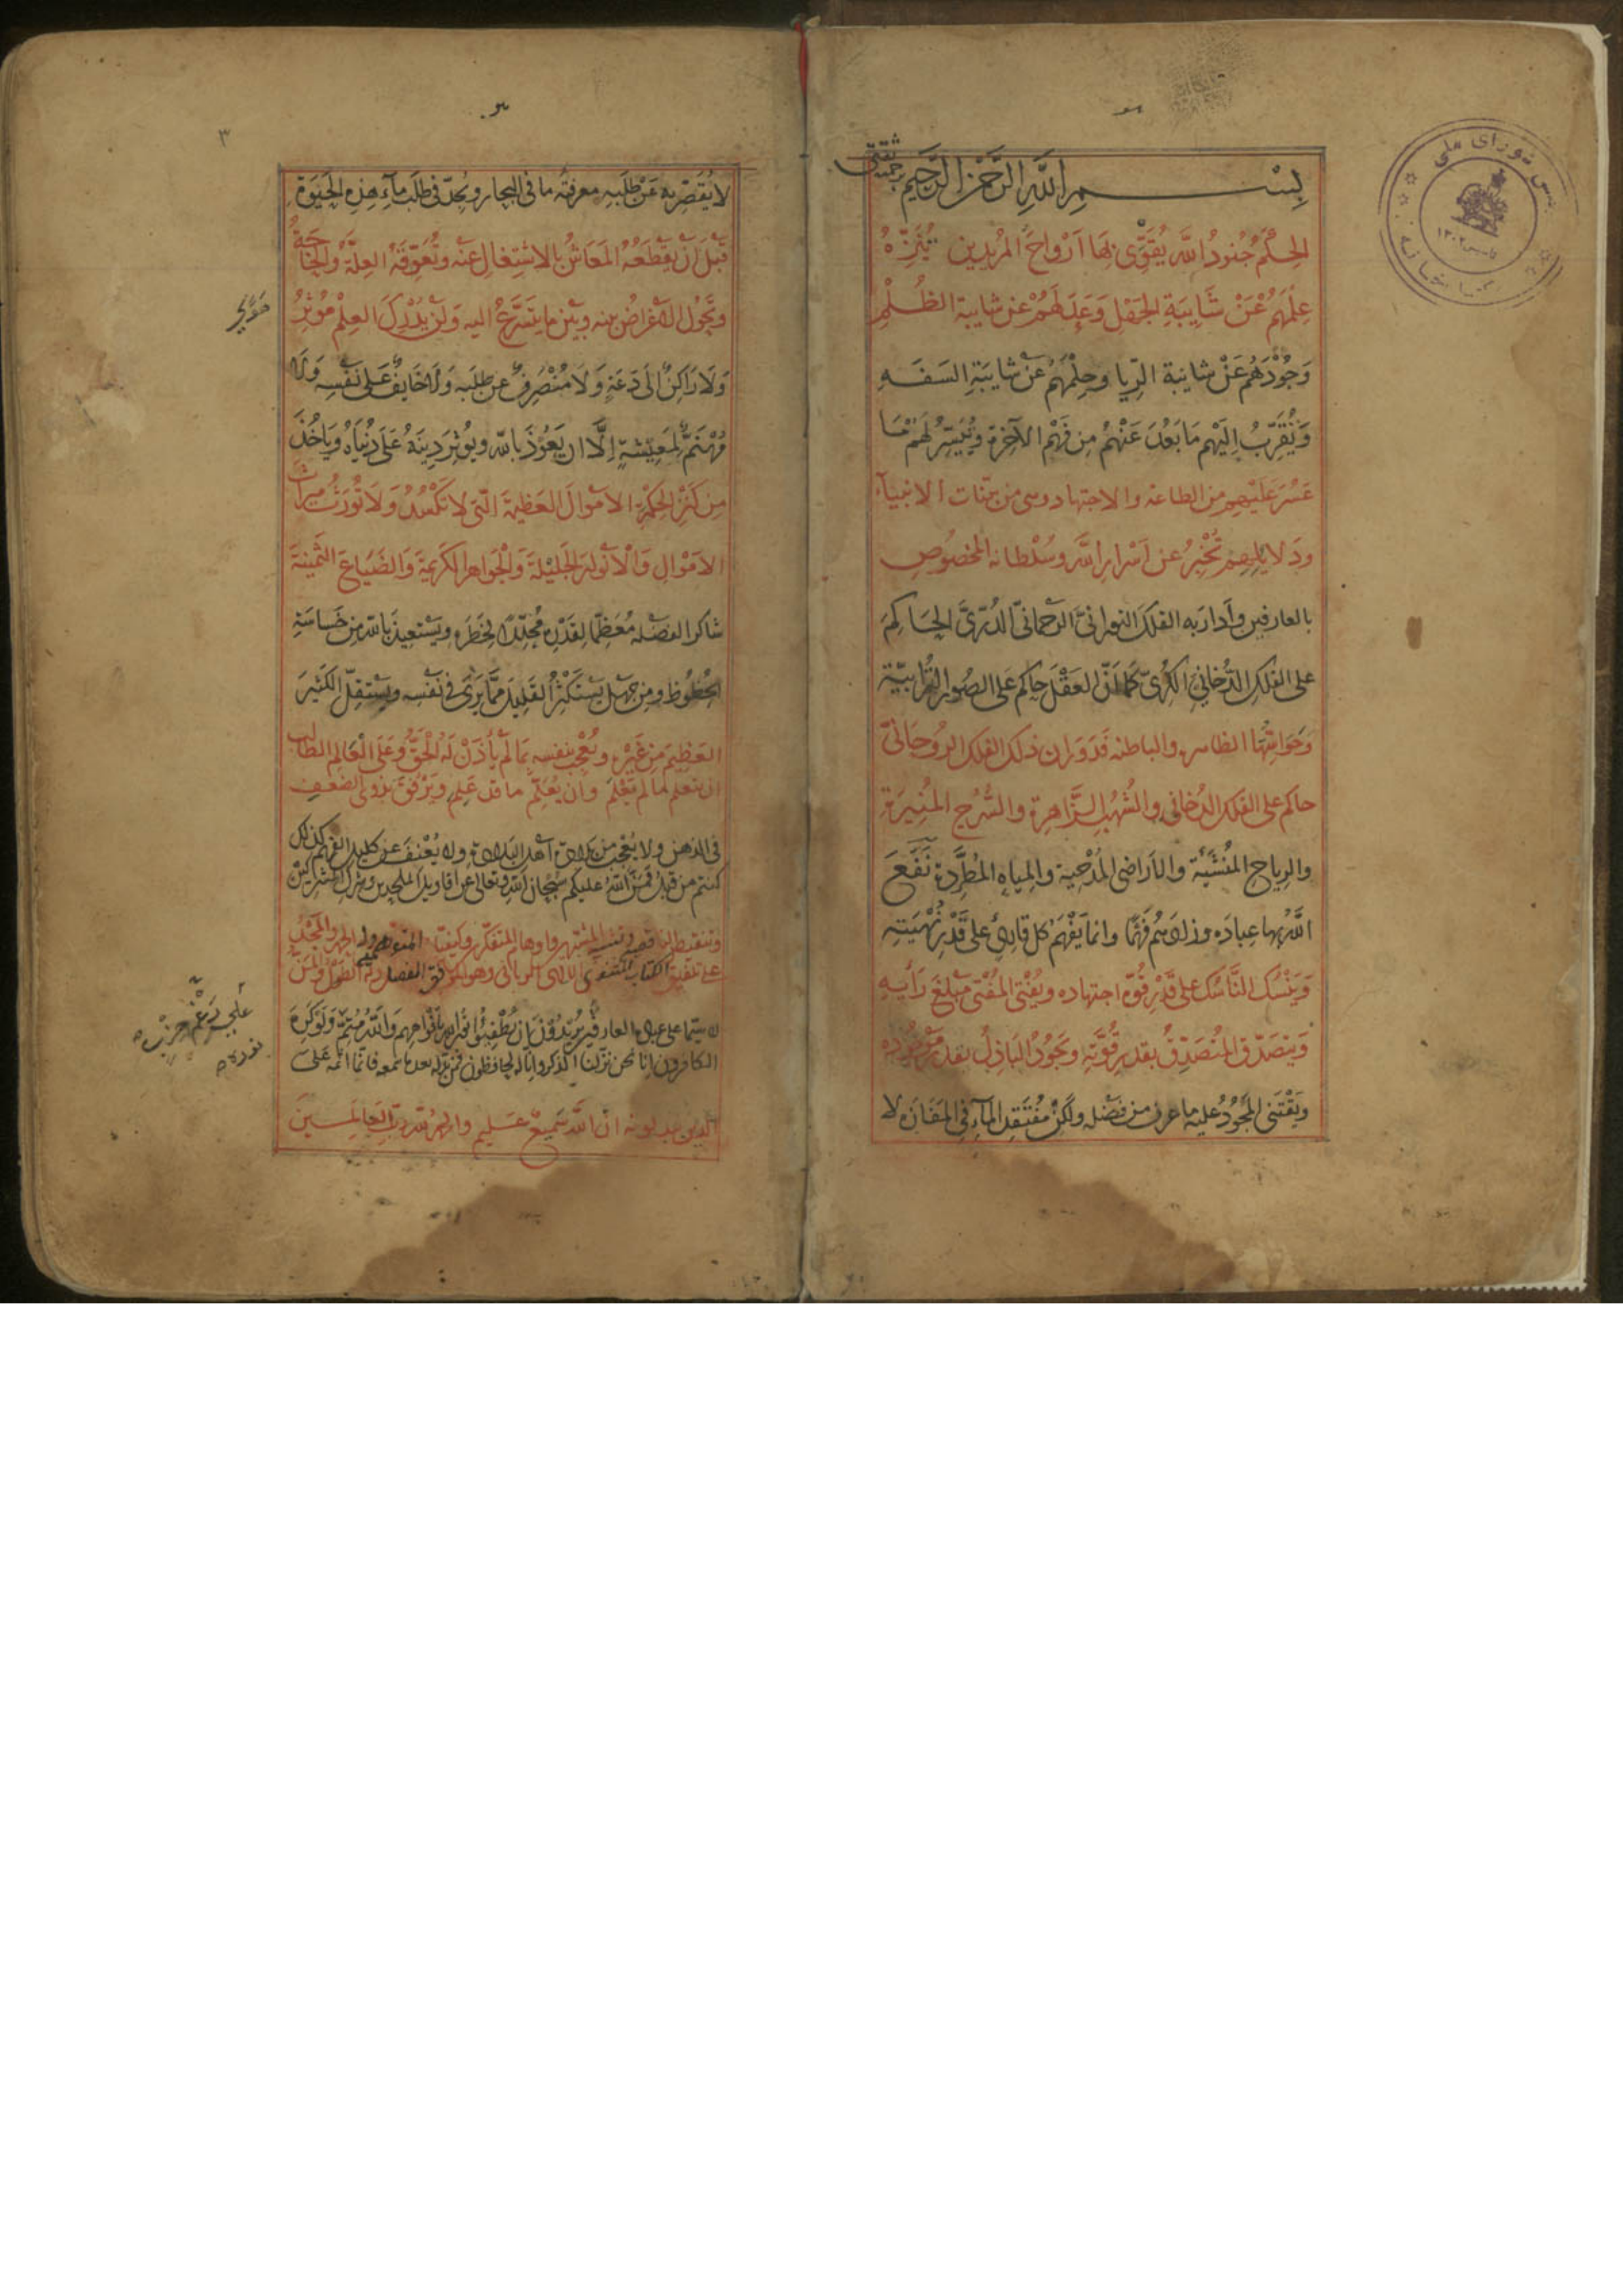 بِسْمِ اللَّهِ الرَّحْمٰنِ الرَّحِيمِ
الحِكَمُ جُنودُ اللَّه يُقَوِّى بِهَا اَرْوَاحَ المُرِيدِين يُنَزِّهُ
عِلْمَهُمْ عَنْ شَايِبَةِ الجَهْلِ وَعَدْلَهُمْ عن شايبة الظُلْمِ
وَجُوْدَهُمْ عَنْ شايبة الرِّيا وحِلْمَهُمْ عَنْ شايبَةِ السَفَهِ
وَيُقَرِّبُ اِلَيْهِم مَا بَعُدَ عَنْهُمْ مِن فَهْمِ الآخرة وَيُيَسِّرُ لَهُمْ مَا
عَسُرَ عَلَيْهِم من الطاعة والاجتهاد وهى من بينات الانبياء
ودلايلهم تُخْبِرُ عن اَسْرارِ اللَّه وسُلْطانه المخصُوصِ
بالعارفين وأَدَارَ به الفلكَ النورانىَّ الرحمانىَّ الدُرّىَّ الحاكمَ
على الفلكِ الدُّخانىِ الكُرىّ كما اَنّ العَقْلَ حاكم على الصُورِ التُرابيّة
وَحَوَاسِّهَا الظاهرة والباطنة فَدَوَران ذلك الفلك الروحانىّ
حاكم على الفلك الدُخانى والشُهُبِ الزَّاهِرَة والسُّرُجِ المُنِيرَةِ
والرياحِ المُنْشَئَة والاَراضى المُدْحِية والمِياهِ المُطَّرِدَة نَفَعَ
اللَّهُ بها عبادَه وزادهم فَهْمًا وانما يَفْهَمُ كل قارئ على قَدْرِ نُهْيَتِهِ
وَيَنْسُك النَّاسكُ على قَدْرِ قُوّة اجتهاده ويُفْتى المُفْتى مَبْلَغَ رَأْيِهِ
وَيتصَدّق المُتصَدِّقُ بقدر قُوَّتِه وَيَجُودُ البَاذِلُ بقدر مَوْجُودِه
ويَقْتَنى المَجُوْدُ عليه ما عرف من فضله ولكن مُفْتَقِد المآءِ فى المَفَازَه لا
٣
لا يُقَصِّر به عَنْ طَلَبِه معرفتُه ما فى البِحَارِ ويَجِدّ فى طَلَبِ مآءِ هذِه الحَيَوةِ
قَبْلَ اَنْ يقطَعَهُ المَعَاشُ بالاشتِغالِ عنه وتُعَوِّقَهُ العِلّةُ والحَاجَةُ
وتَحُولَ الاَغراضُ بينه وبَيْنَ ما يتَسَرَّعُ اليه وَلَنْ يُدْرِكَ العِلْمَ مُؤْثِرُ
وَلَا رَاكِنٌ الى دَعَةٍ وَلَا مُنْصَرِفٌ عن طلَبِه ولا خَايِفٌ عَلى نَفْسِه وَلا
مُهْتَمٌّ لمَعِيْشَةٍ اِلَّا ان يَعُوْذَ بالله ويُوثِرَ دِينَهُ عَلَى دُنْيَاهُ وَيَاخُذَ
مِن كَنْزِ الحِكْمَةِ الاَمْوَالَ العَظيمَةَ الّتى لا تَكْسُدُ وَلَا تُورَثُ ميراثَ
الاَمْوَالِ وَالْاَنْوارَ الجَلِيْلَةَ وَالْجَواهِرَ الكَرِيمَةَ وَالضِيَاعَ الثَمِينَةَ
شاكرًا لفضله مُعَظِّمًا لِقَدْرِه مُجَلِّلًا لِخَطَرِه ويَسْتعيذَ بالله من خَسَاسَةِ
الحُظُوْظِ ومن جَهْلٍ يَستكثِرُ القَلِيلَ مِمَّا يَرَى فى نَفْسِه ويستقِلّ الكثيرَ
العَظِيمَ مِن غَيْرِه ويُعْجَب بنفسِه بمَا لَمْ يأْذَنْ لَهُ الحَقُّ وعَلى الْعَالِمِ الطالب
ان يتعلم ما لم يَعْلَم وان يُعَلِّمَ ما قد عَلِم ويَرْفُقَ بذوى الضعف
فى الذهن ولا يُعْجَب من بلادة أهل البلادة ولا يُعْنِفَ عن كليل الفهم كذلك
كنتم من قبل فَمَنَّ اللهُ عليكم سُبحان الله وتعالى عن اقاويل الملحدين وشرك المشركين
وتنقيط الناقصين وتشبيه المشبّهين واوهام المتفكّرين المتوهمين وله الحمد والمَجْدُ
ولَه الطَوْلُ والمَنُّ
لا سيّما على عبدِه العارف يُرِيدُوْنَ اَن يُطْفِئُوا نُورَ الله بِأَفْواهِهِم وَاللّهُ مُتِمُّ وَلَوْ كَرِهَ
الكافرون انا نحن نزّلنا الذكر وانا له لحافظون فمن بدّله بعد ما سمعه فانما اثمه على
الذين يبدلونه ان اللّه سَميعٌ عَليم والحمد للّه رب العالمين